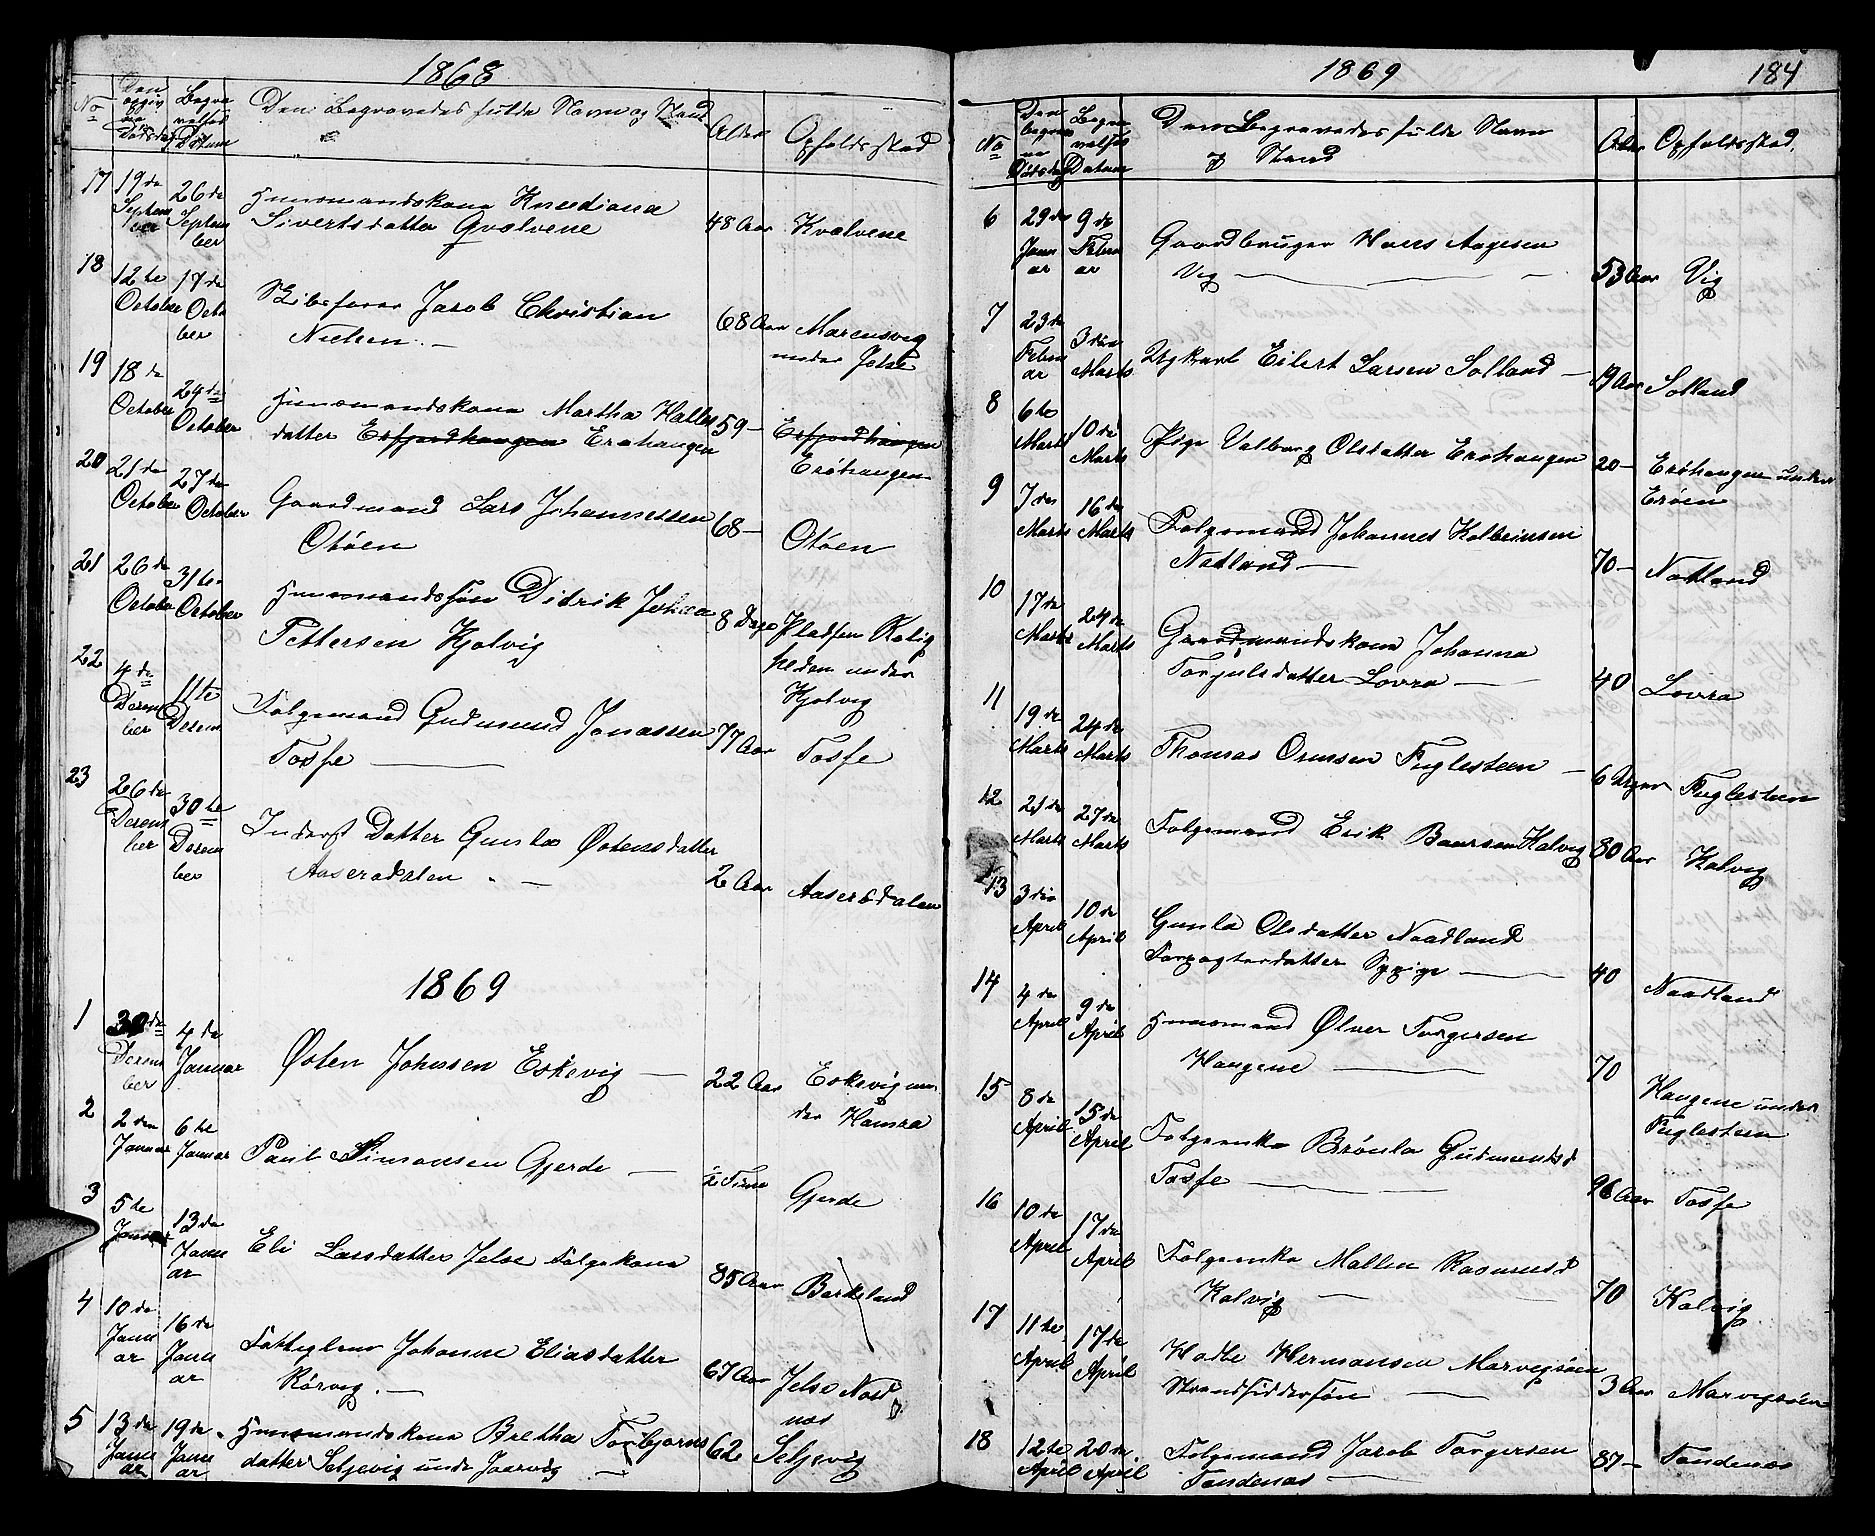 1868
No
Den opgivne Dødsdag
Begravelses Datum
Den Begravedes fulde Navn og Stand
Alder
Opholdssted
17 19de September 26de September Huusmandskone
Sivertsdatter Qvalvene 48 Aar Kvalvene
18 12te October 17de October Skibsfører Jacob Christian
Nielsen. — 68 Aar Marcusvig
under Jelse
19 18de October 24de October Huusmandskone Martha Halles
datter Erfjordhaugen Erøhaugen 59 — Erfjordhaugen
Erøhaugen
20 21de October 27de October Gaardmand Lars Johannessen
Otøen 68 — Otøen
21 26de October 31te October Huusmandssøn Didrik Johan
Pettersen Hjolvig 8 Dage Pladsen Rolig
heden under
Hjolvig
22 4de December 11te Decem Følgemand Gudmund Jonassen
Tosfe — 77 Aar Tosfe
23 26de December 30te December Inderst Datter Gunla Østensdatter
Aaserødalen. — 2 Aar Aaserødalen
1869
1 30de December 4de Januar Østen Johnsen Eskevig — 22 Aar Eskevig un
der Hamra
2 2den Januar 6te Januar Paul Simonsen Gjerde — ½ Time Gjerde
3 5te Januar 13de Januar Eli Larsdatter Jelse Følgekone 85 Aar Barkeland
4 10de Januar 16de Januar Fattiglem Johanne Eliasdatter
Rørvig. — 67 Aar Jelse Nord
næs
5 13de Januar 19de Januar Huusmandskone Bretha Torbjørns
datter Seljevig under Jaarvig — 62 Seljevig
1869
184
No
Den begravnes Dødsdag
Begravelses Datum
Den Begravedes fulde Navn
og Stand
Alder
Opholdssted.
6 29de Januar 9de Februar Gaardbruger Hans Aagesen
Vig — 53 Aar Vig
7 23de Februar 3die Marts Ungkarl Eilert Larsen Solland — 19 Aar Solland
8 6te Marts 10de Marts Pige Valborg Olsdatter Erøhaugen 20 — Erøhaugen under
Erøen
9 7de Marts 16de Marts Følgemand Johannes Kolbeinsen
Natland — 70 — Natland
10 17de Marts 24de Marts Gaardmandskone Johanna
Torjulsdatter Lovra — 40 Lovra
11 19de Marts 24de Marts Thomas Ormsen Fuglesteen — 6 Uger Fuglesteen
12 21de Marts 27de Marts Følgemand Erik Baarsen Halvig 80 Aar Halvig
13 3die April 10de April Gunla Olsdatter Naadland
Forpagterdatter — 40 Naadland
14 4de April 9de April Huusmand Ølver Torgersen
Haugene — 70 Haugene under
Fuglesteen
15 8de April 15de April Følgeenke Brønla Gudmundsd
Tosfe — 96 Aar Tosfe
16 10de April 17de April Følgeenke Mallen Rasmusd
Halvig — 70 Halvig
17 11te April 17de April Hadle Hermansen Marvigsøen
Strandsiddersøn — 3 Aar Marvigsøen
18 12te April 20de April Følgemand Jacob Torgersen
Tandenæs — 87 — Tandenæs